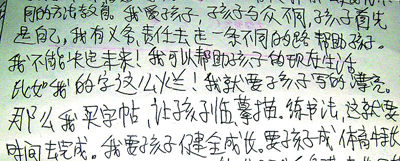 同的方法教育。我爱孩子,孩子与众不同,孩子首先
是自己,我有义务、责任去走一条不同的路帮助孩子。
我不能失也年来!我可以帮助孩子的现在生活
比如我的字这么烂!我就要孩子写的漂亮。
那么我买字帖,让孩子临摹描。练书法,这就要
时间去完成。我要孩子健全成长。要孩子成 体育特长